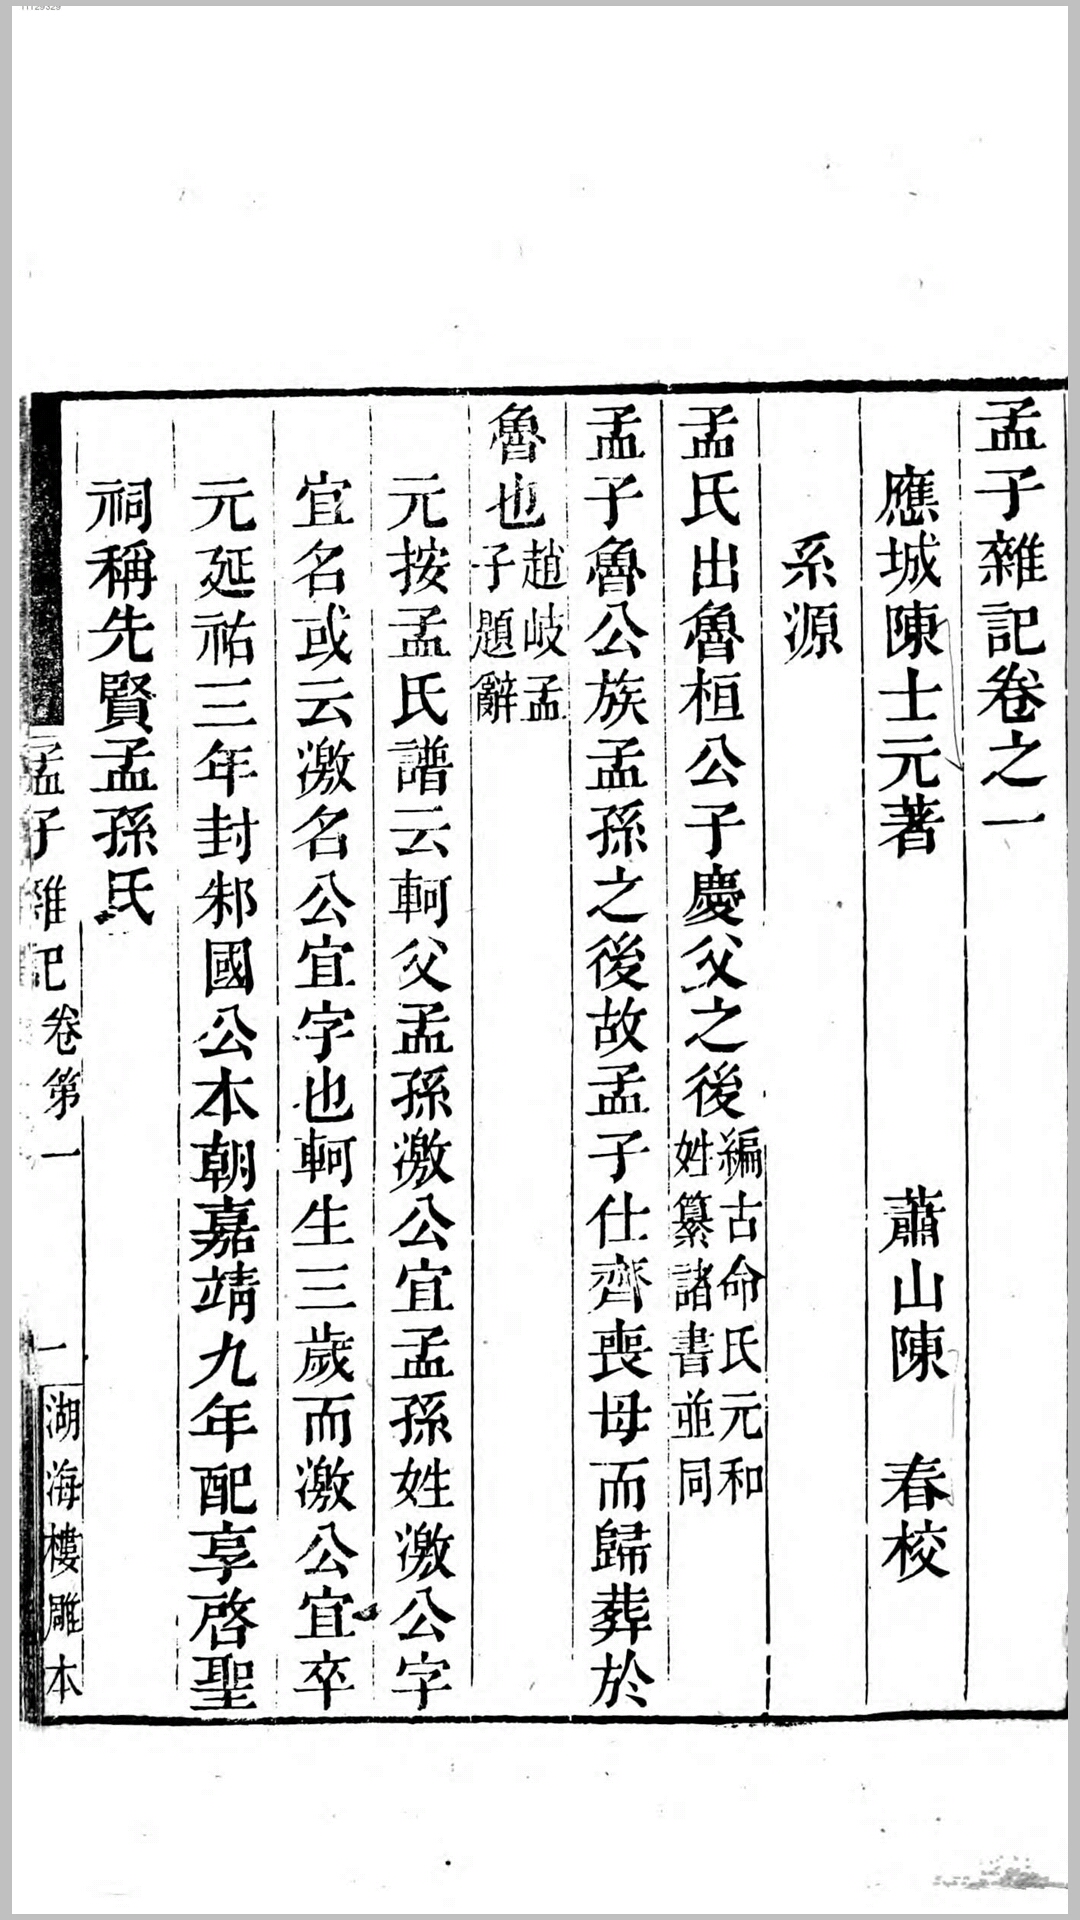 孟子雜記卷之一
應城陳士元著 蕭山陳 春校
系源
孟氏出魯桓公子慶父之後編古命氏元和姓纂諸書並同
孟子魯公族孟孫之後故孟子仕齊喪母而歸葬於
魯也趙岐孟子題辭
元按孟氏譜云軻父孟孫激公宜孟孫姓激公字
宜名或云激名公宜字也軻生三歲而激公宜卒
元延祐三年封邾國公本朝嘉靖九年配享啓聖
祠稱先賢孟孫氏
孟子雜記卷第一 一 湖海樓雕本